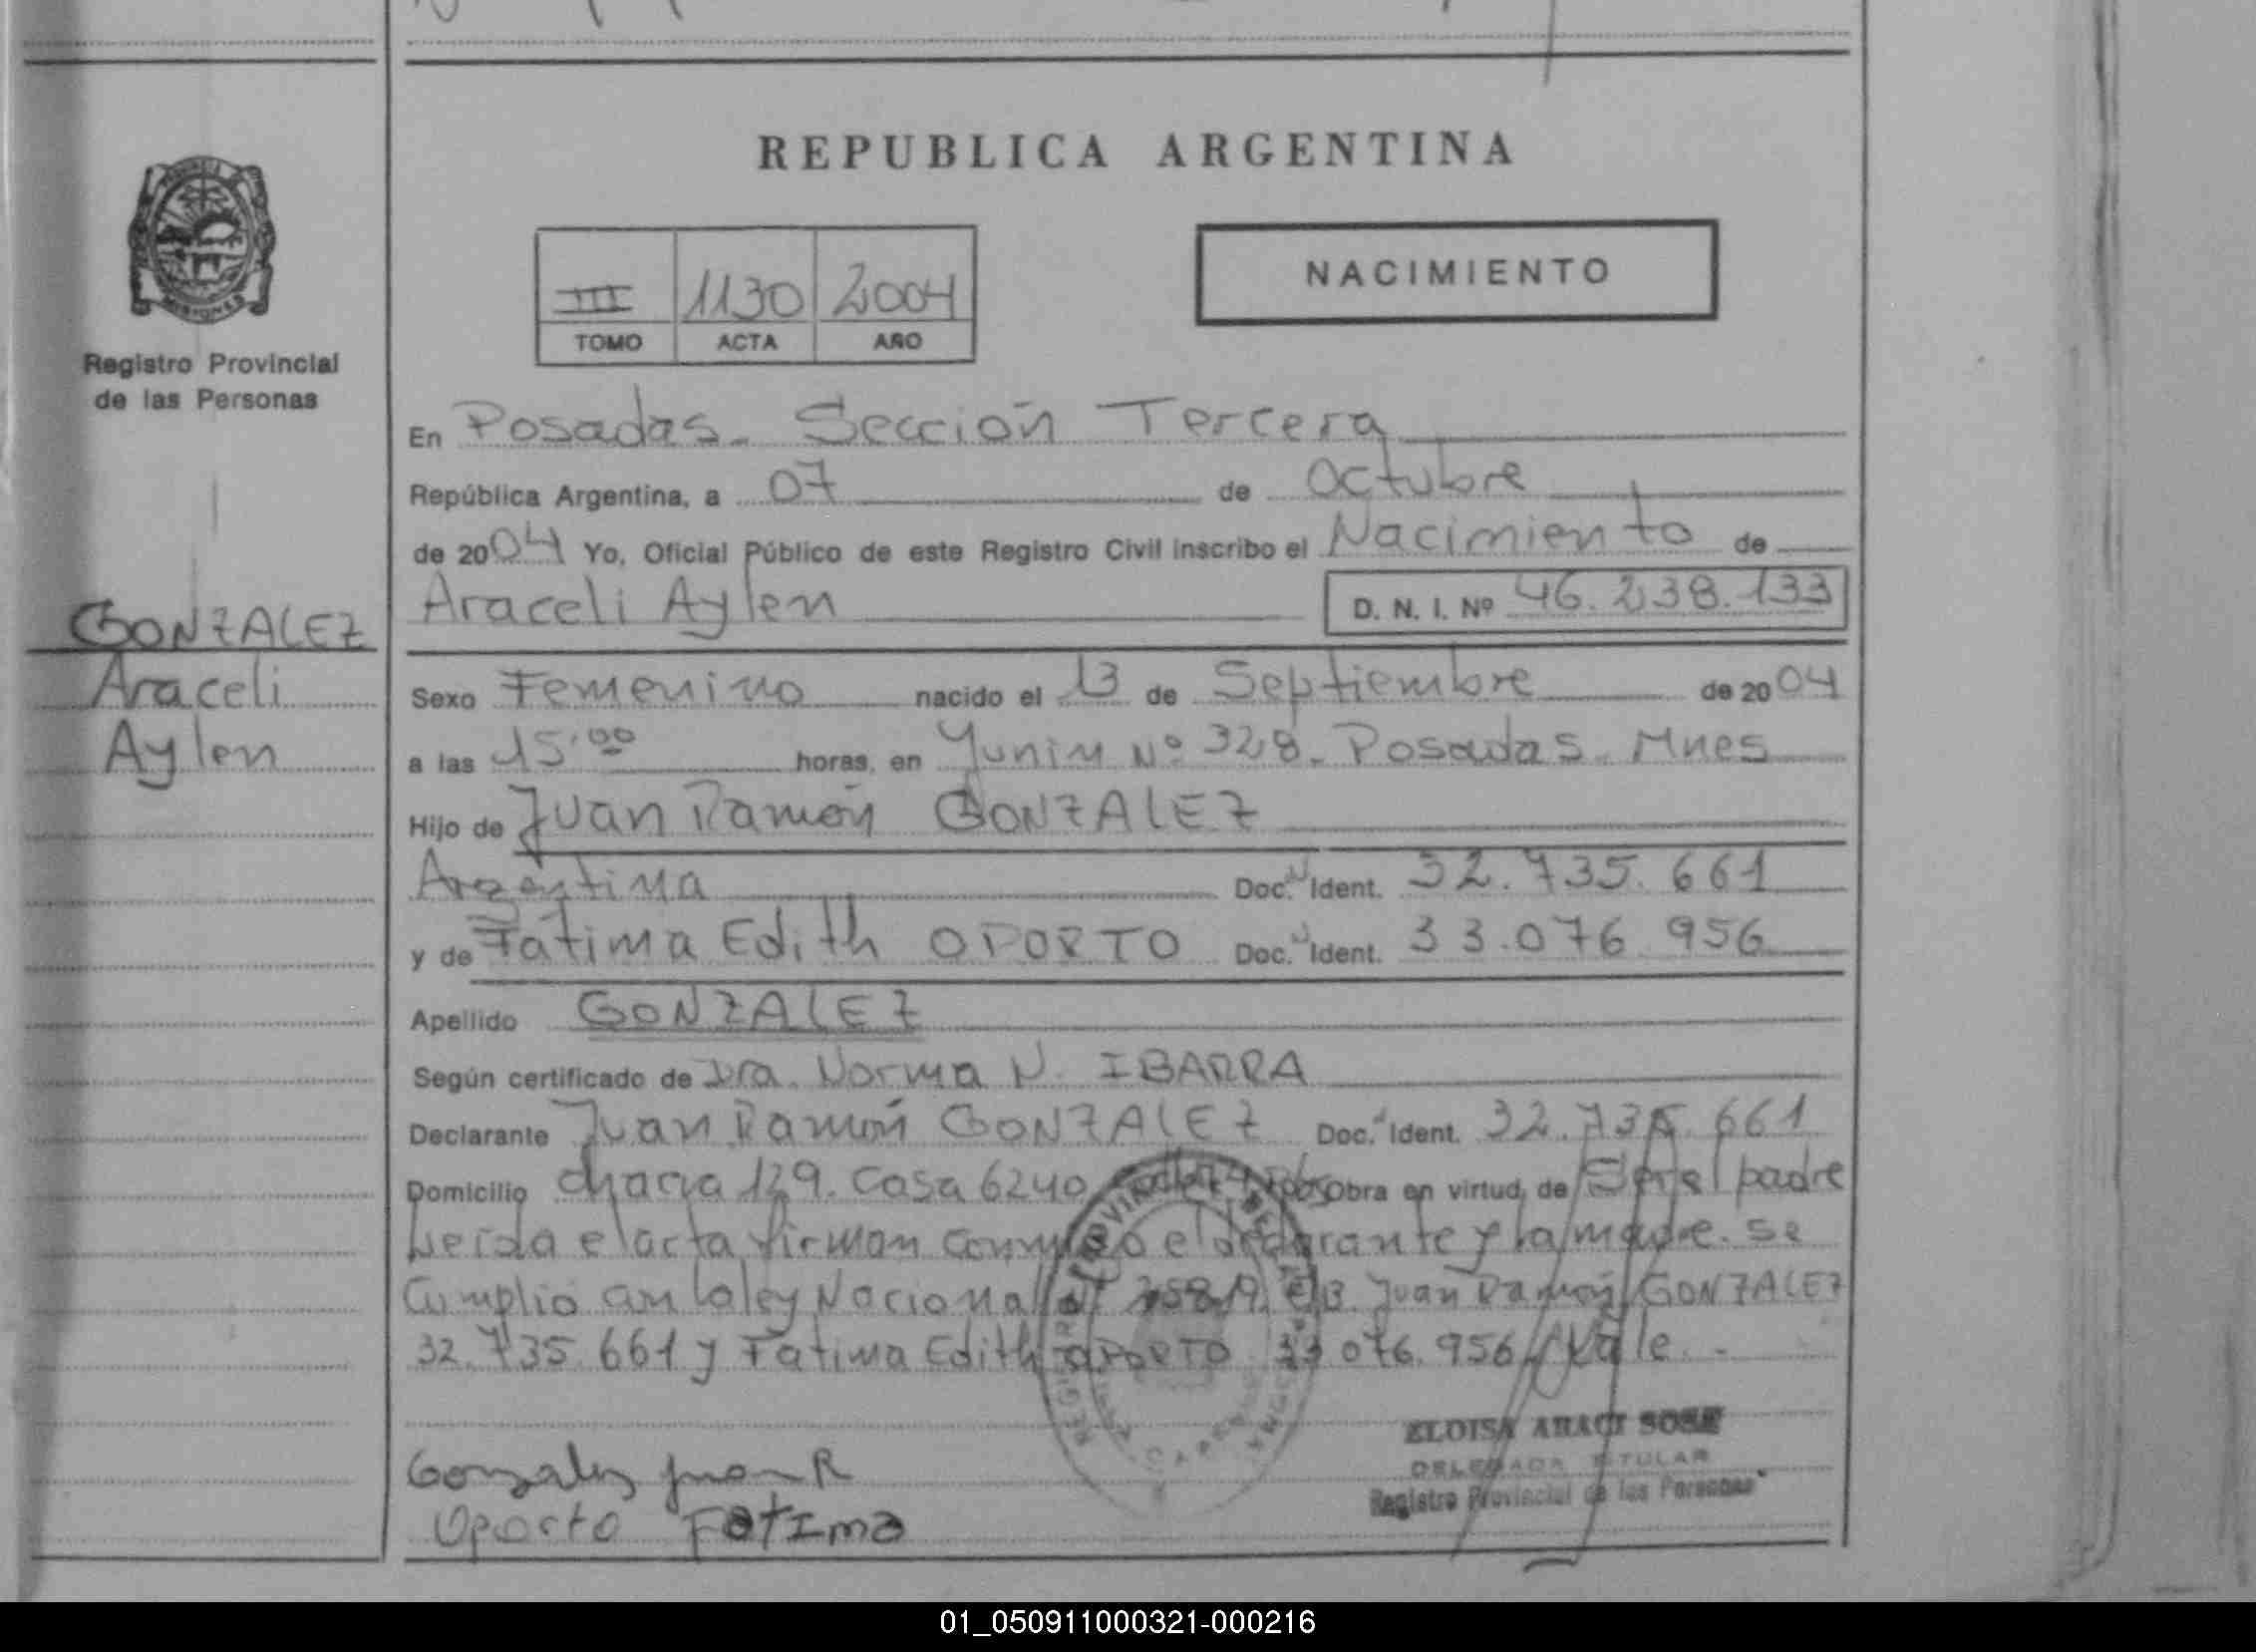 REPUBLICA ARGENTINA
III 1130 2004
TOMO ACTA AÑO
NACIMIENTO
MISIONES
Registro Provincial
de las Personas
GONZALEZ
Araceli
Aylen
En Posadas. Sección Tercera
República Argentina, a 07 de Octubre
de 2004 Yo, Oficial Público de este Registro Civil inscribo el Nacimiento de
Araceli Aylen D. N. I. Nº 46.238.133
Sexo Femenino nacido el 13 de Septiembre de 2004
a las 15:00 horas, en Yunin Nº 328. Posadas. Mnes
Hijo de Juan Ramón GONZALEZ
Argentina Doc. Ident. 32.735.661
y de Fatima Edith OPORTO Doc. Ident. 33.076.956
Apellido GONZALEZ
Según certificado de Dra. Norma N. IBARRA
Declarante Juan Ramón GONZALEZ Doc. Ident. 32.735.661
Domicilio chacra 129. Casa 6240 Obra en virtud de Ser el padre
Leida el acta firman conmigo el declarante y la madre. se
Cumplio con la ley Nacional E/B. Juan Ramón GONZALEZ
32.735.661 y Fatima Edith OPORTO 33.076.956 // Vale.-
ELOISA ARACI SOSE
DELEGADA TITULAR
Registro Provincial de las Personas
Gonzalez Juan R
Oporto Fatima
01_050911000321-000216